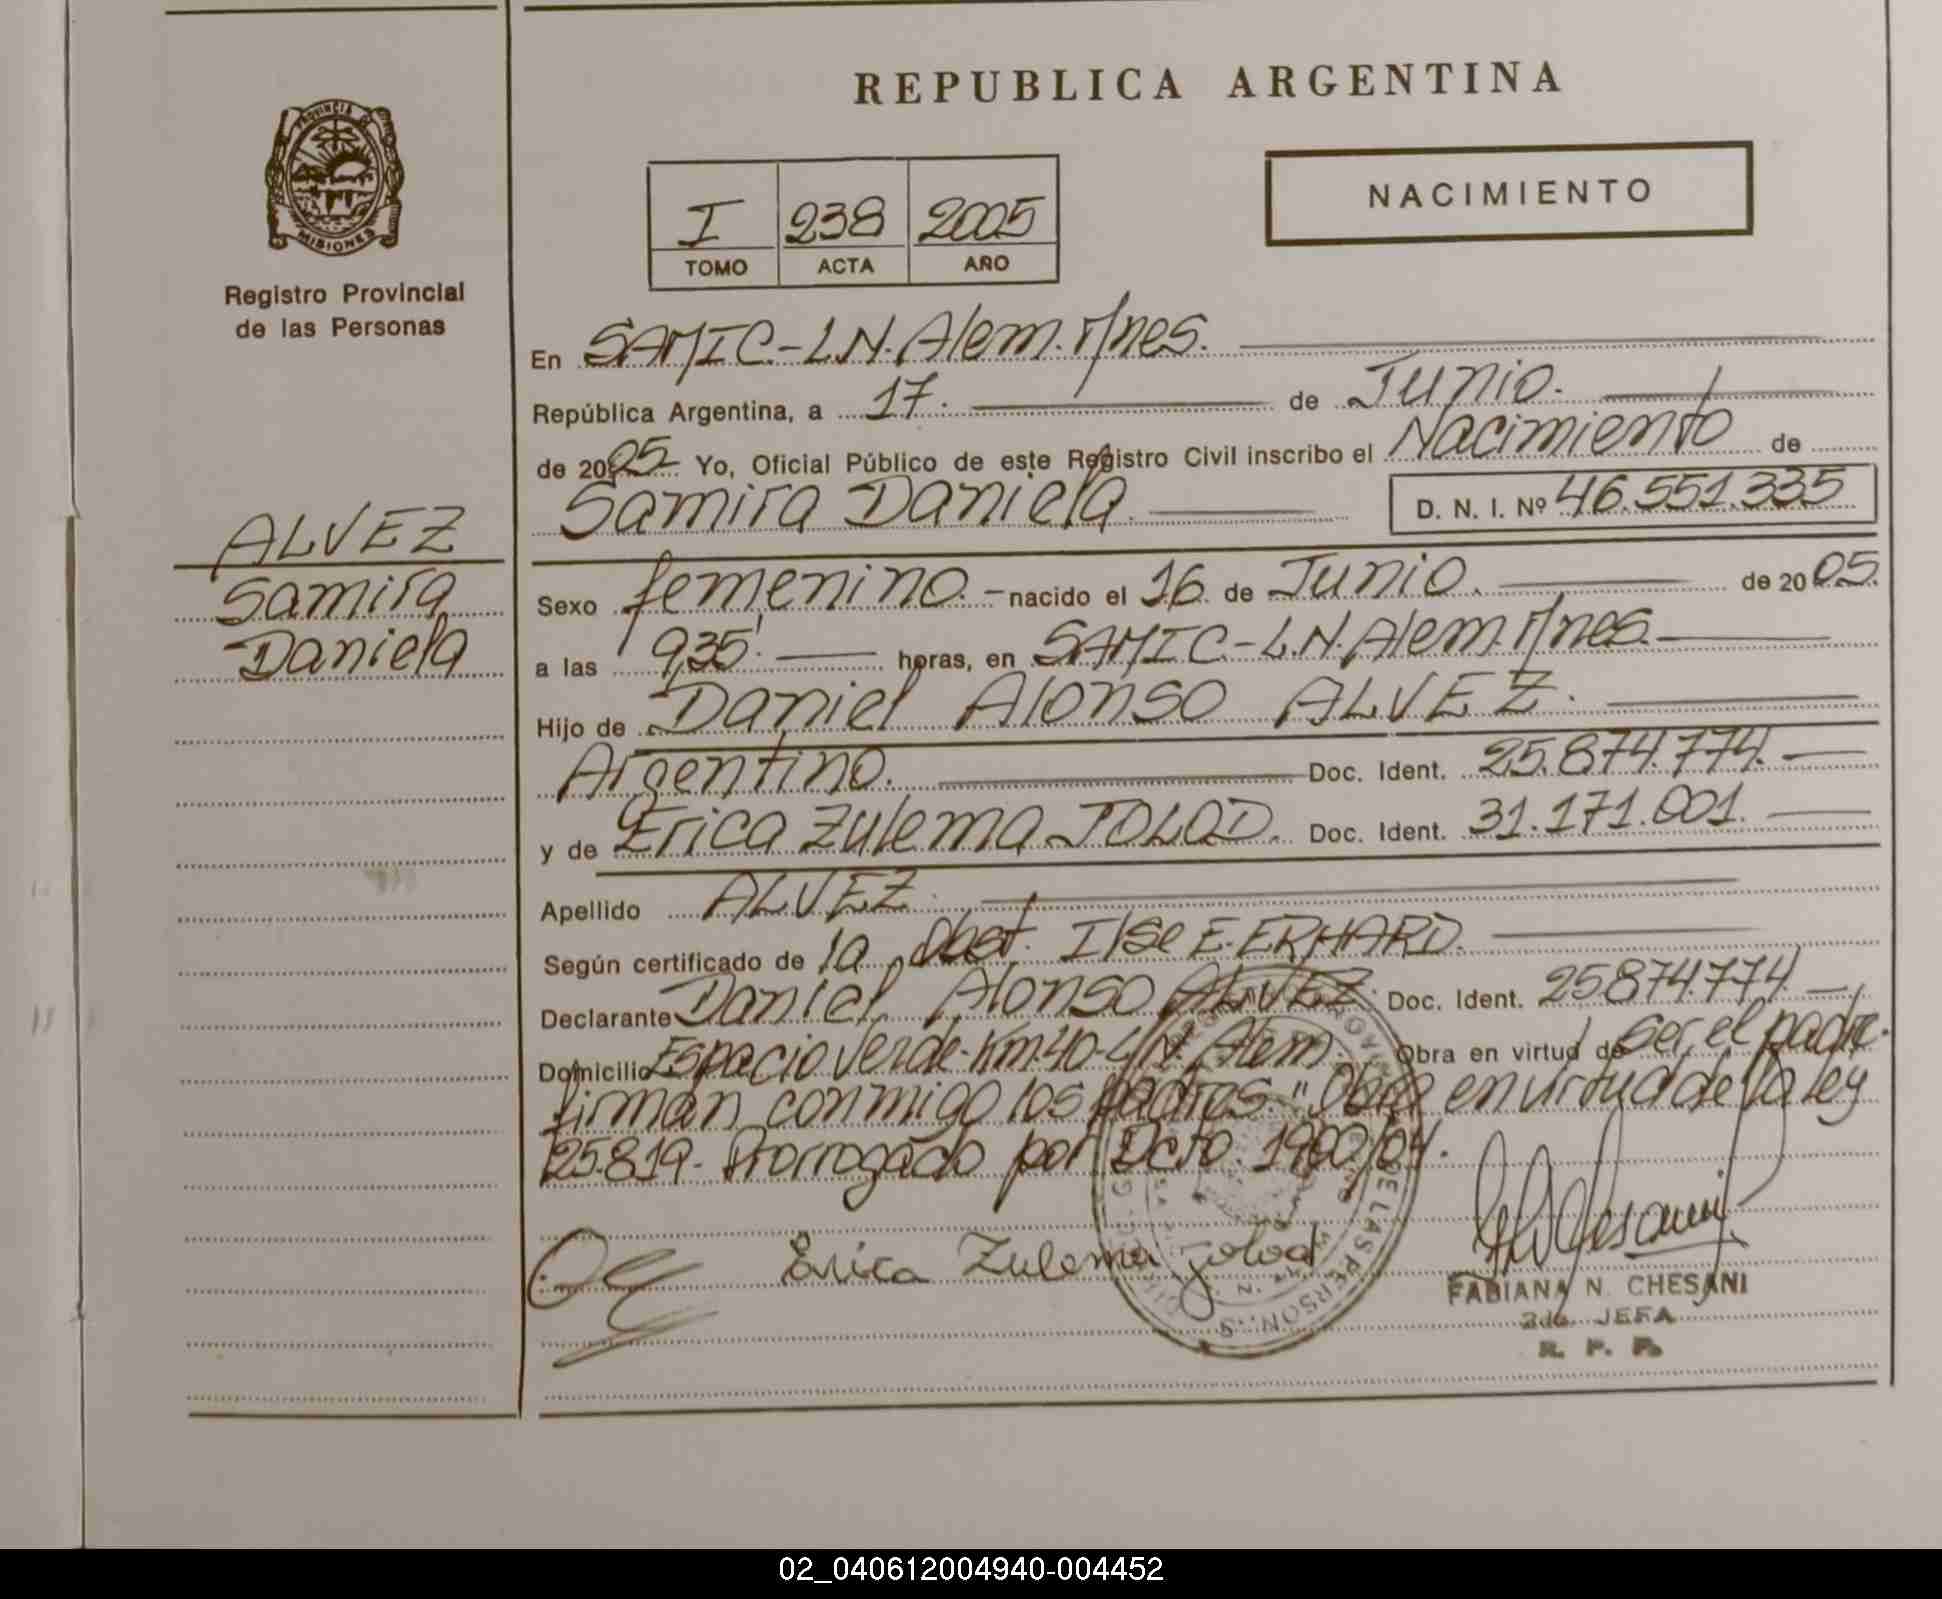 REPUBLICA ARGENTINA
PROVINCIA DE
MISIONES
Registro Provincial
de las Personas
NACIMIENTO
I 238 2005
TOMO ACTA AÑO
En SAMIC-L.N.Alem.M/nes.
República Argentina, a 17. de Junio.
de 2005 Yo, Oficial Público de este Registro Civil inscribo el Nacimiento de
Samira Daniela. D. N. I. Nº 46.551.335
ALVEZ
Samira
Daniela
Sexo femenino. - nacido el 16 de Junio. de 2005.
a las 9,35'. horas, en SAMIC-L.N.Alem.M/nes.
Hijo de Daniel Alonso ALVEZ.
Argentino. Doc. Ident. 25.874.774.
y de Erica Zulema JOLOD. Doc. Ident. 31.171.001.
Apellido ALVEZ.
Según certificado de la Obst. Ilse E. ERHARD.
Declarante Daniel Alonso ALVEZ. Doc. Ident. 25874.774
Domicilio Espacio Verde-Km.40-L.N. Alem. Obra en virtud de ser el padre.
firman conmigo los padres. "Obra en virtud de la ley
25.819- Prorrogado por Dcto. 1900/04.
Erica Zulema Jolod
FABIANA N. CHESANI
2da. JEFA
R. P. P.
DE LAS PERSONAS
02_040612004940-004452